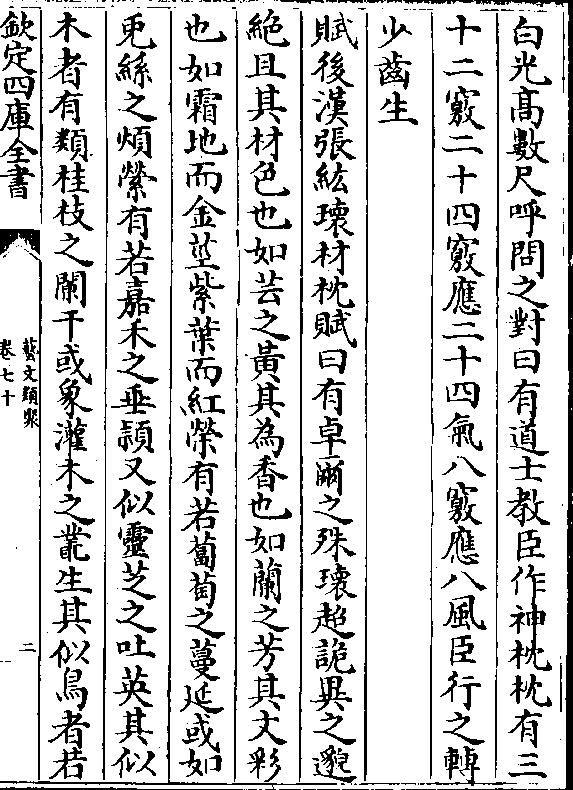 白光髙數尺呼問之對曰有道士教臣作神枕枕有三
十二竅二十四竅應二十四氣八竅應八風臣行之轉
少齒生
賦後漢張紘瓌材枕賦曰有卓爾之殊瓌超詭異之邈
絶且其材色也如芸之黃其為香也如蘭之芳其文彩
也如霜地而金莖紫葉而紅榮有若蔔萄之蔓延或如
兎絲之煩縈有若嘉禾之垂頴又似靈芝之吐英其似
木者有類桂枝之闌干或象灌木之叢生其似鳥者若
欽定四庫全書
藝文類聚
卷七十
二